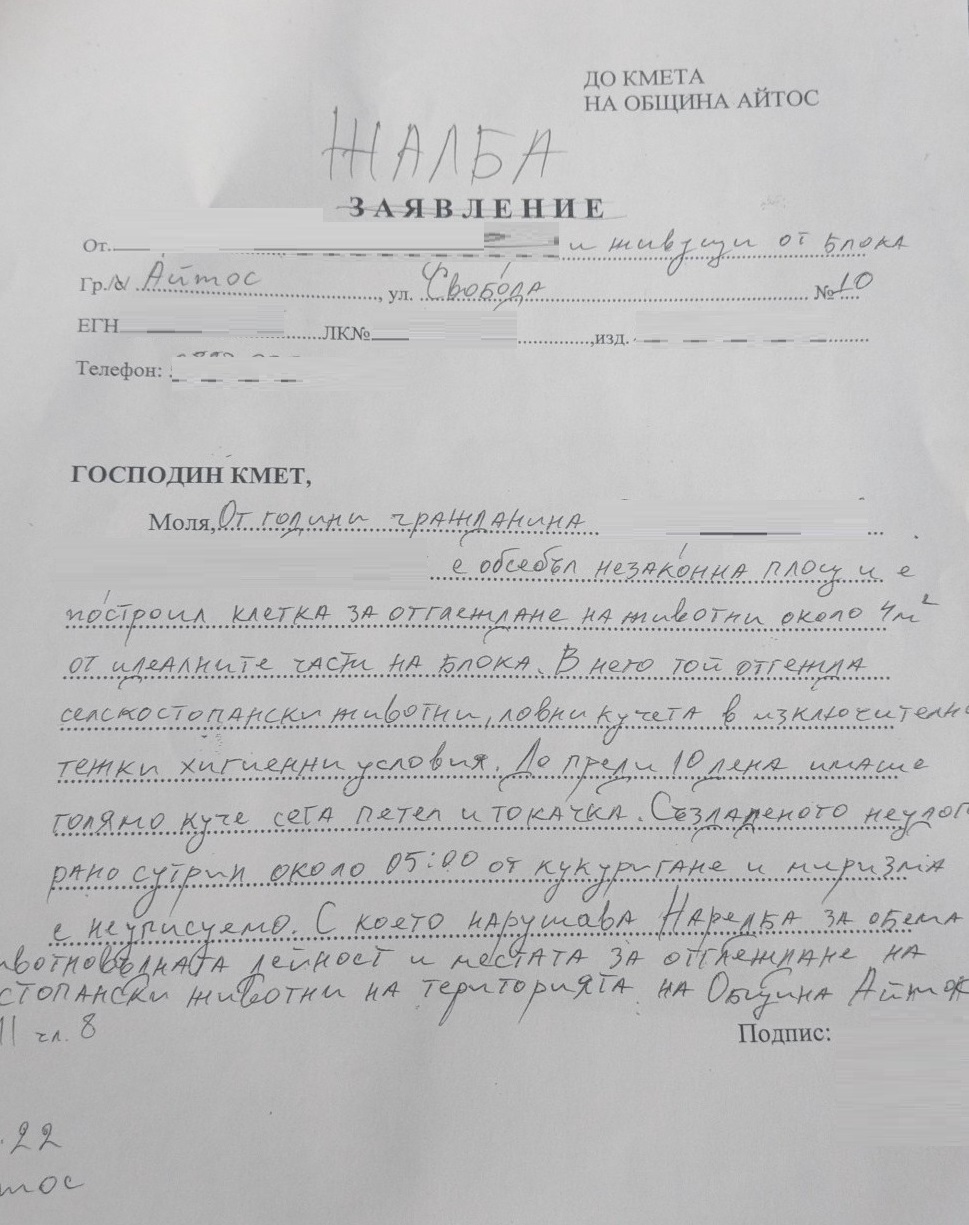 ДО КМЕТА
НА ОБЩИНА АЙТОС
ЖАЛБА
ЗАЯВЛЕНИЕ
От. и живущи от блока
Гр./с/ Айтос, ул. Свобода №10
ЕГН ЛК№ ,изд.
Телефон:
ГОСПОДИН КМЕТ,
Моля, От години гражданина
е обсебъл незаконна площ и е
построил клетка за отглеждане на животни около 4м²
от идеалните части на блока. В него той отгежда
селскостопански животни, ловни кучета в изключителн
тежки хигиенни условия. До преди 10 дена имаше
голямо куче сега петел и токачка. Създаденото неудо
рано сутрин около 05:00 от кукуригане и миризма
е неуписуемо. С което нарушава Наредба за обема
ивотновъдната дейност и местата за отглеждане на
стопански животни на територията на Община Айтос
чл. 8
Подпис:
.22
тос